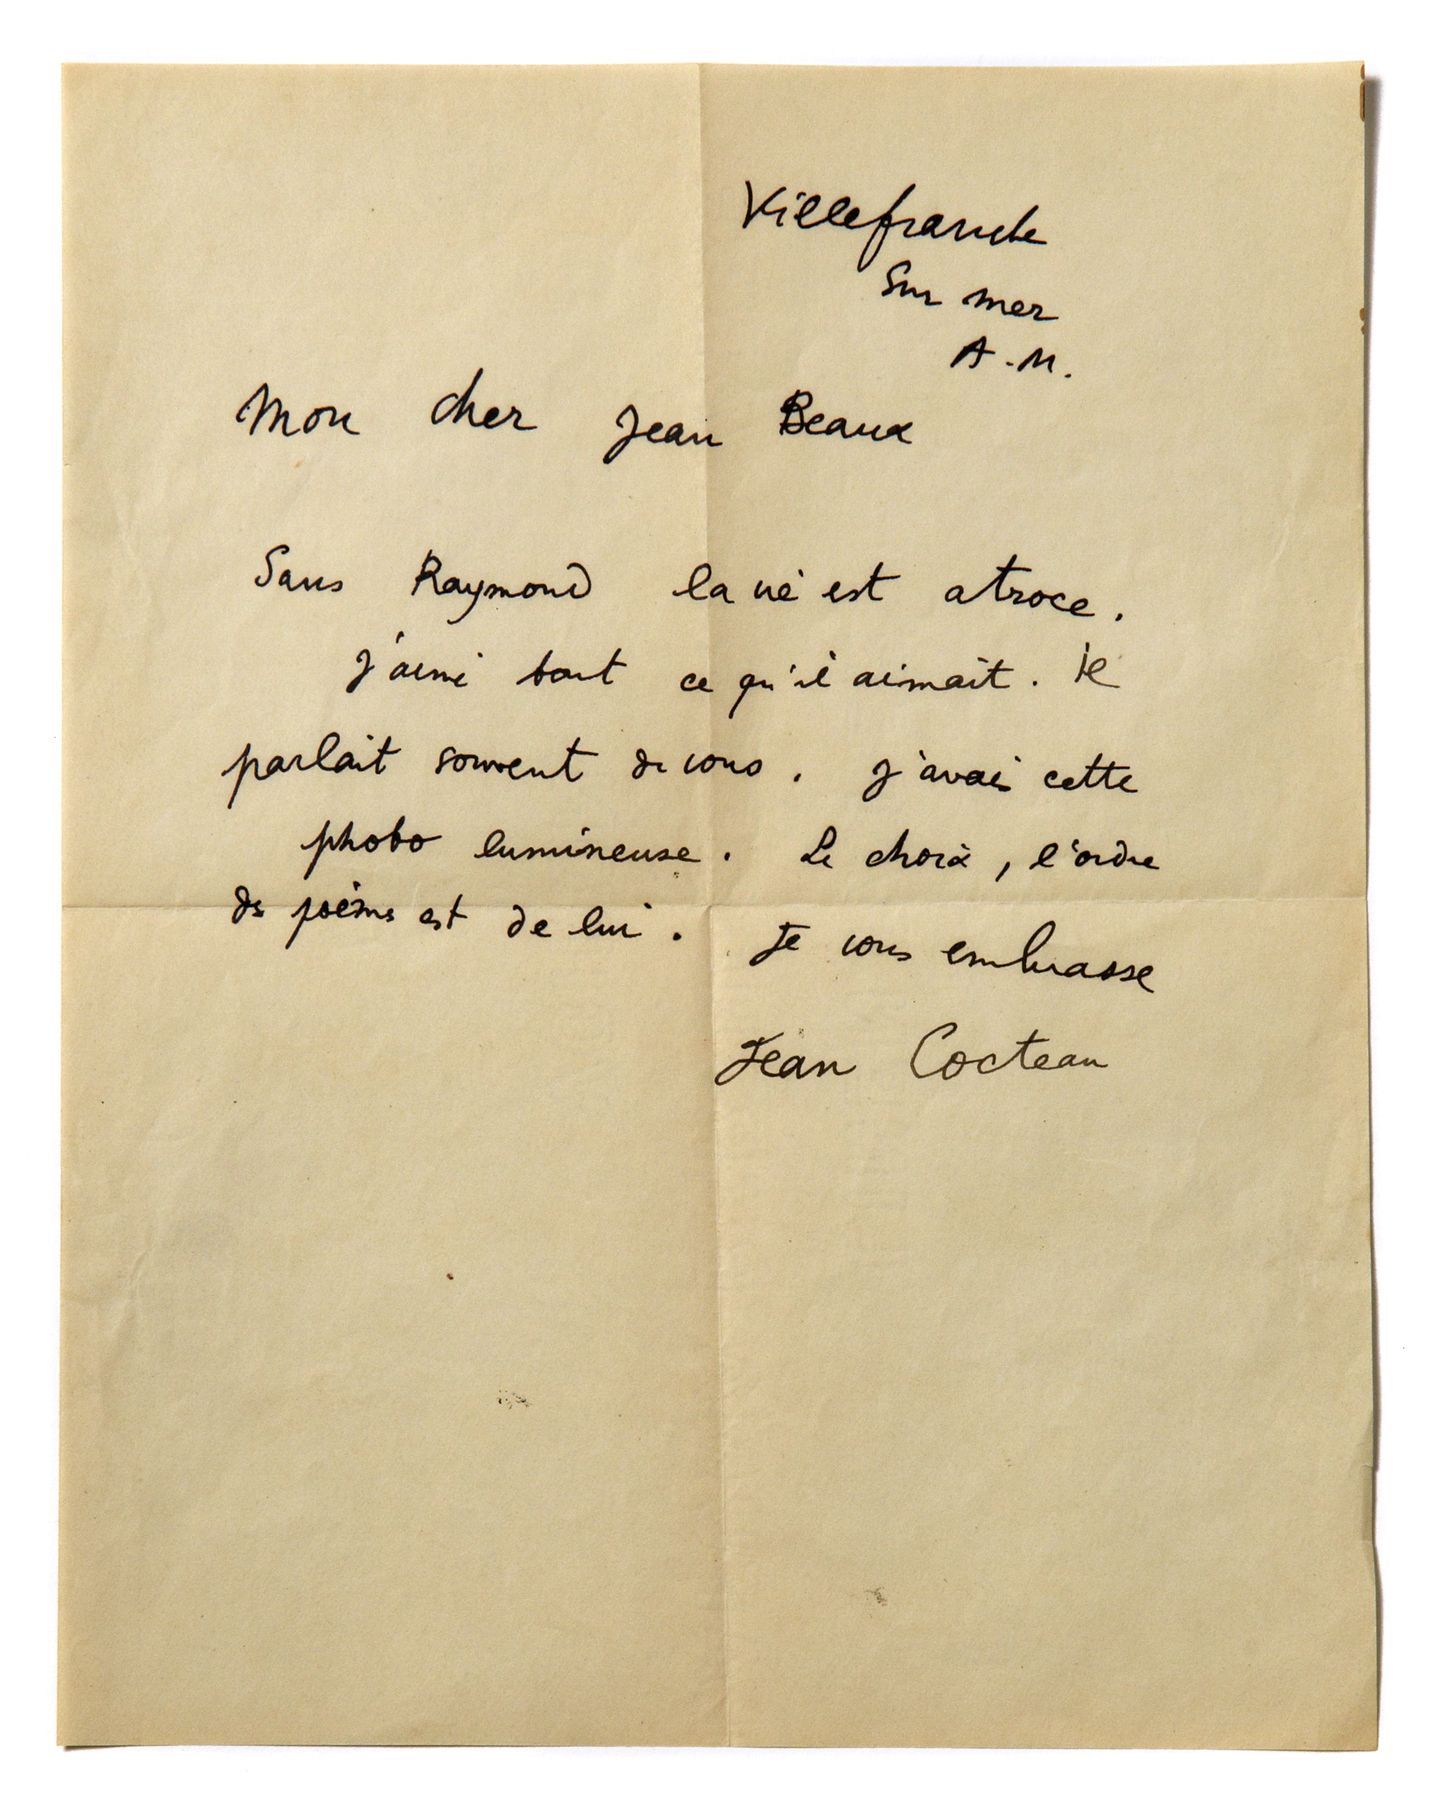 Villefranche
sur mer
A.M.
Mon cher Jean Beaux
Sans Raymond la vie est atroce.
J'aime tout ce qu'il aimait. Il
parlait souvent de vous. J'avais cette
photo lumineuse. Le choix, l'ordre
des poèmes est de lui. Je vous embrasse
Jean Cocteau